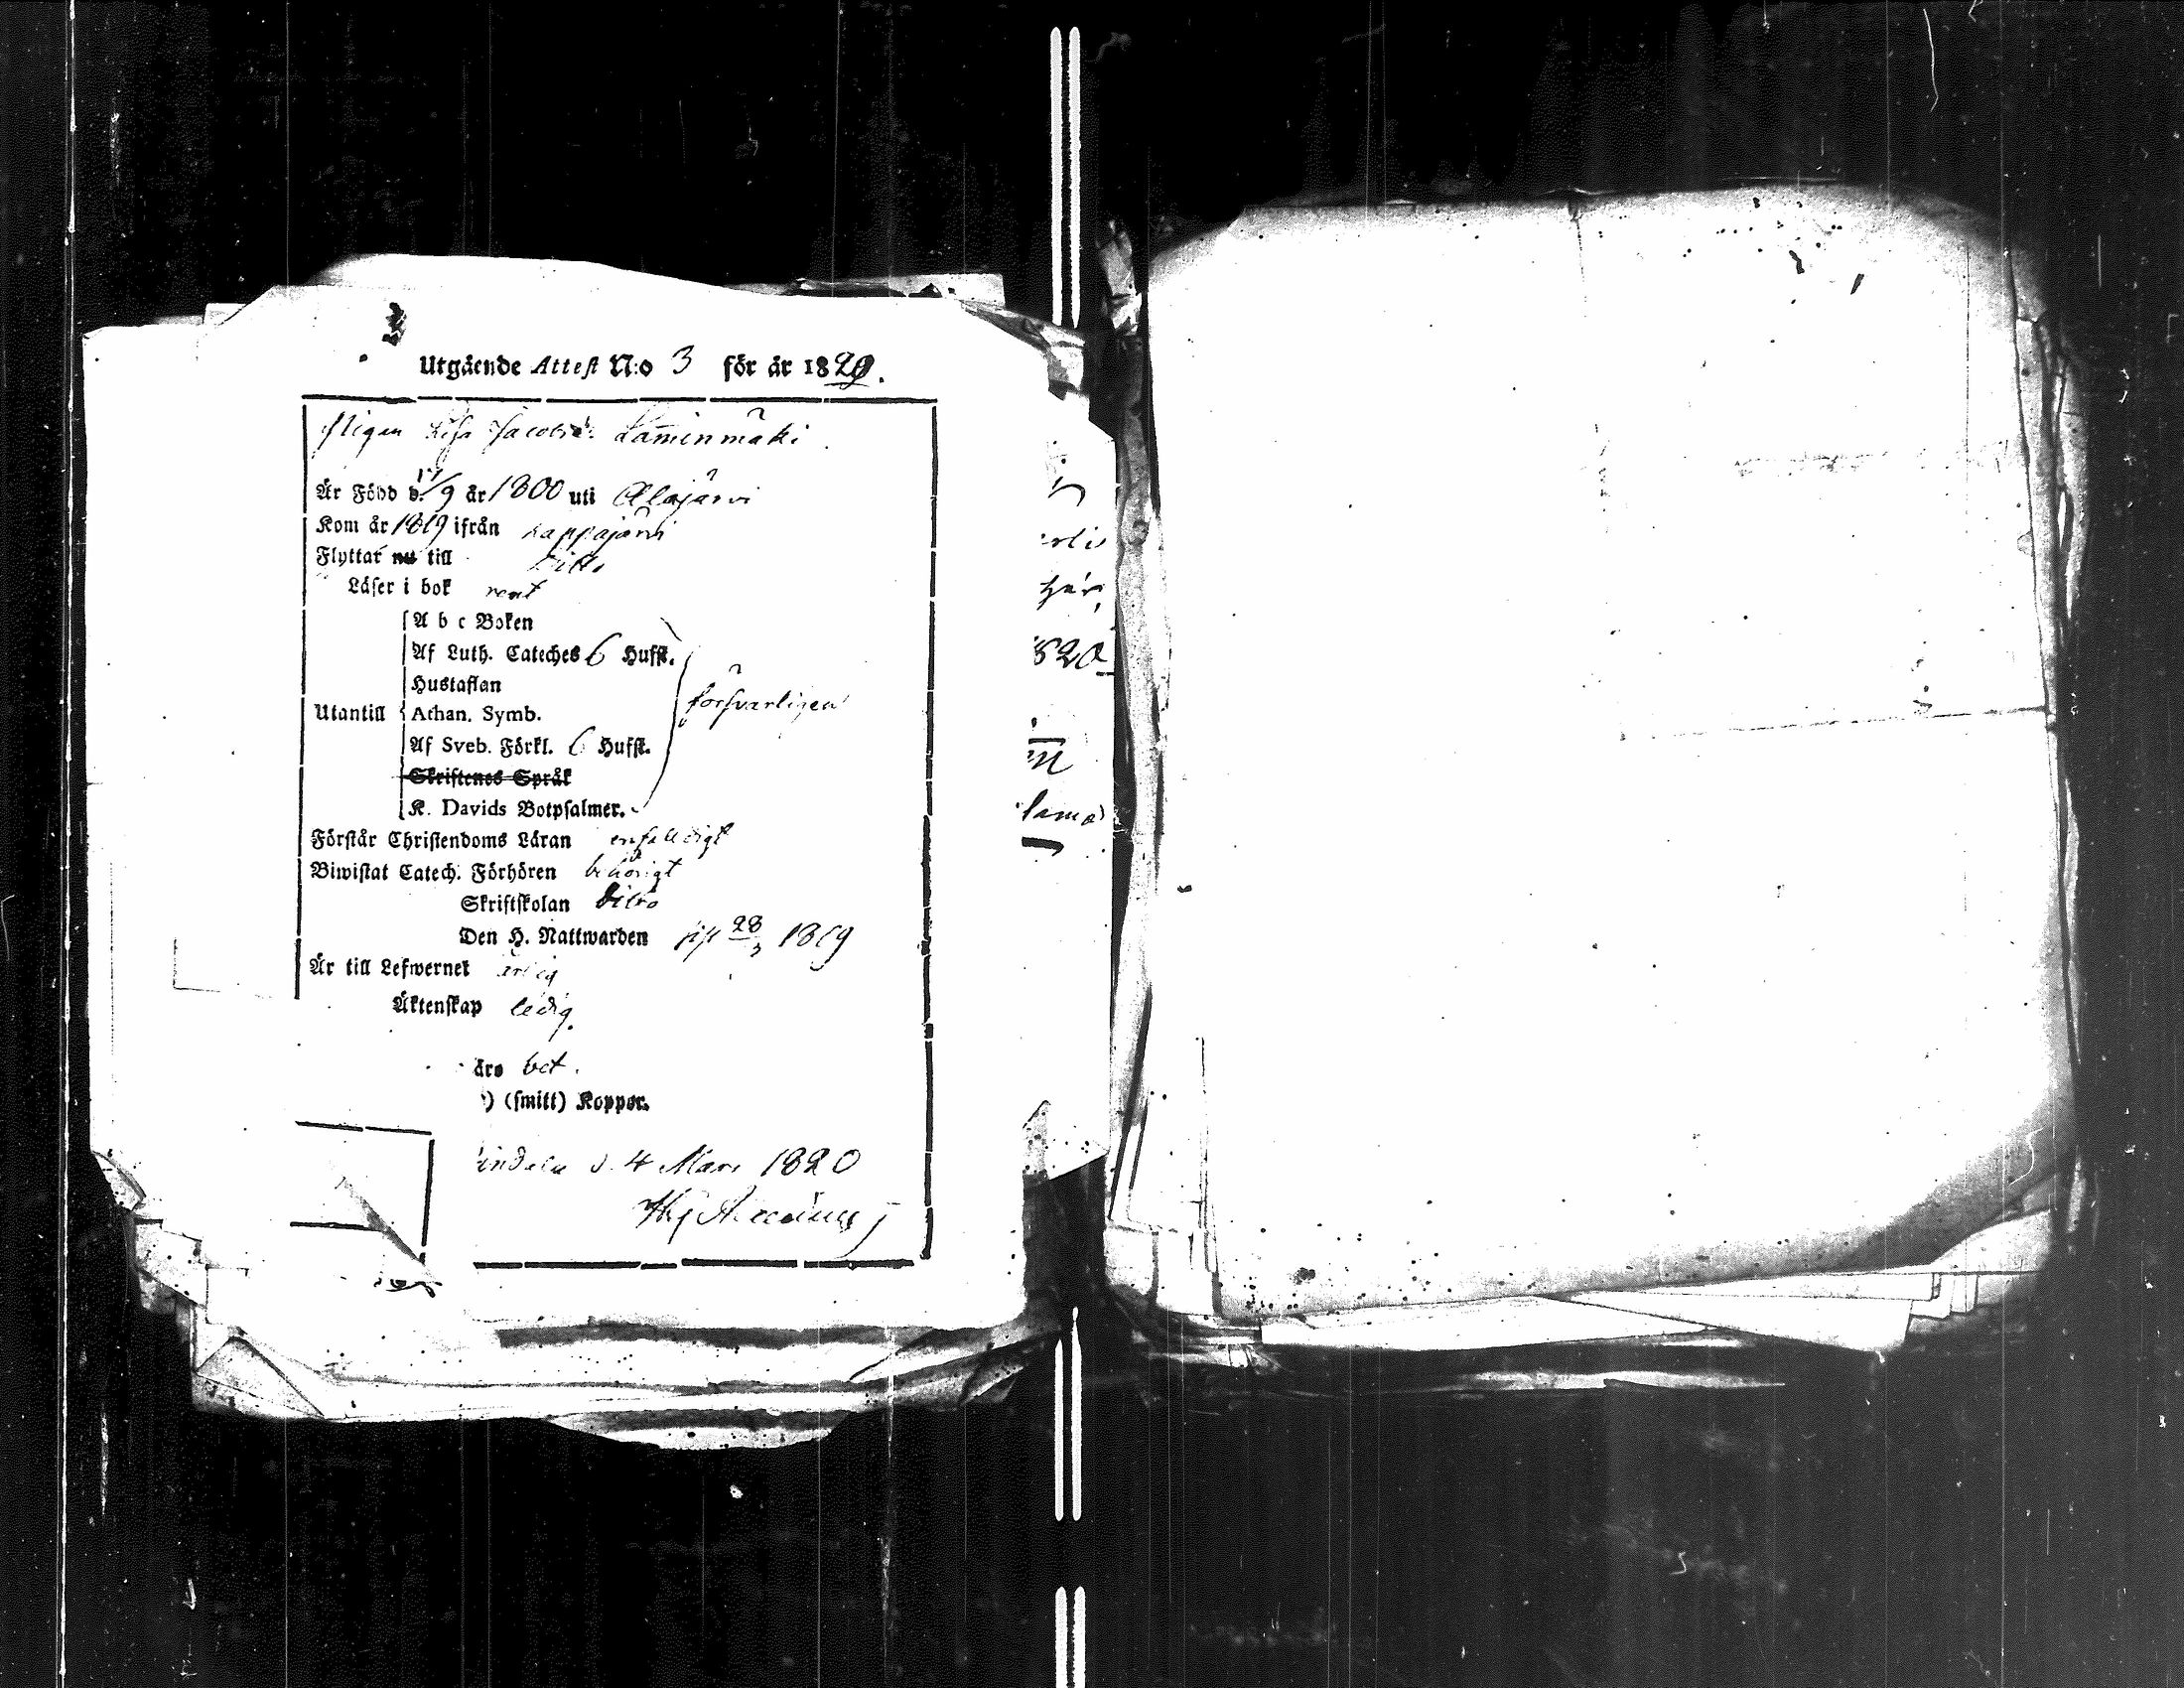 Utgående Attest N:o 3 för år 1820.
Pigan Lisa Jacobsd. Laminmäki
Är Född d. 17/9 år 1800 uti Alajärvi
Kom år 1819 ifrån Lappajärvi
Flyttar nu till Ditto
Läser i bok rent
A b c Boken
Af Luth. Cateches 6 Hufst.
Hustaflan
Utantill Athan. Symb. försvarligen
Af Sveb. Förkl. 6 Hufst.
Skriftenes Språk
K. Davids Botpsalmer.
Förstår Christendoms Läran enfalldigt
Biwistat Catech. Förhören behörigt
Skriftskolan ditto
Den H. Nattwarden sist 28/3 1819
Är till Lefwernet ärlig
Äktenskap ledig.
äro bet.
) (smitt) Koppor.
indala d. 4 Mars 1820
820